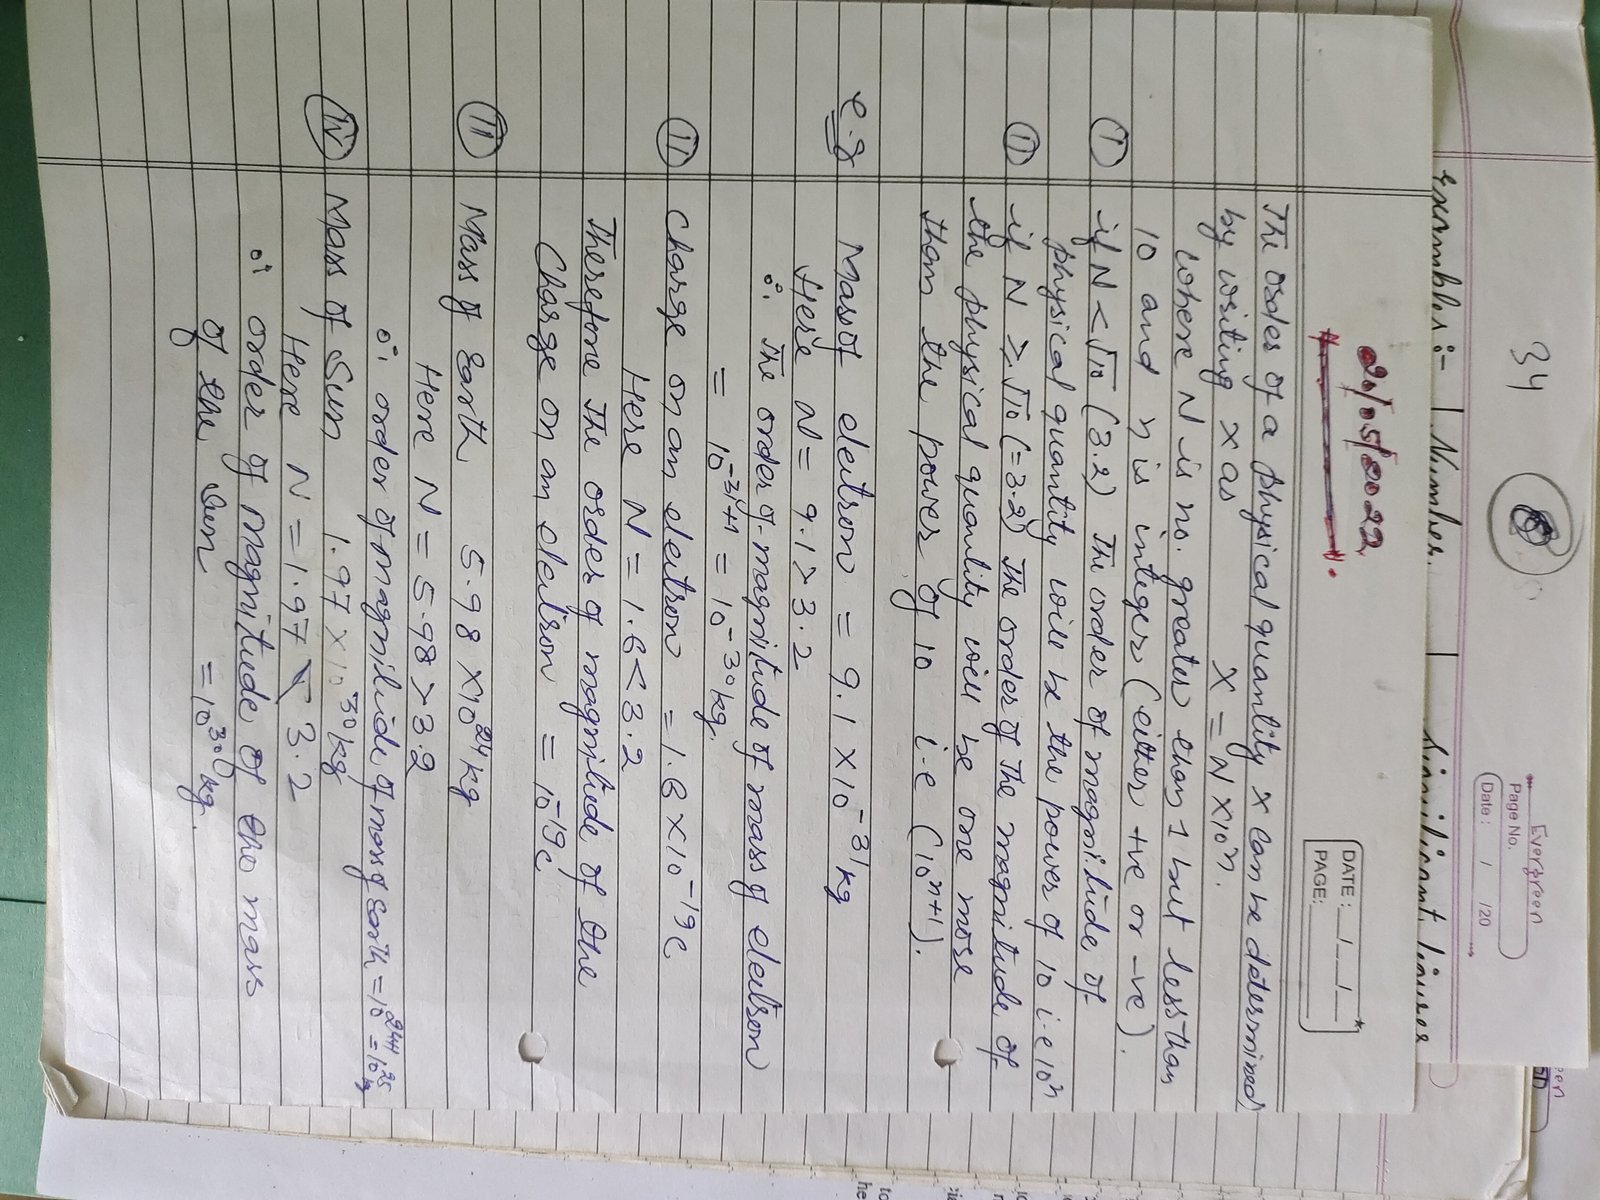 34
Evergreen
Page No.
Date : / /20
Examples:- | Number. | Significant figures
2./.5/2022
DATE : _/_/_
PAGE:
The order of a physical quantity x can be determined
by writing x as x = N x 10ⁿ.
where N is no. greater than 1 but less than
10 and n is integer (either +ve or -ve).
(i) if N < √10 (3.2) The order of magnitude of
physical quantity will be the power of 10 i.e 10ⁿ
(ii) if N ⩾ √10 (=3.2) The order of The magnitude of
the physical quantity will be one more
than the power of 10 i.e (10ⁿ⁺¹).
e.g Mass of electron = 9.1 × 10⁻³¹ kg
Here N = 9.1 > 3.2
∴ The order of magnitude of mass of electron
= 10⁻³¹⁺¹ = 10⁻³⁰ kg.
(ii) Charge on an electron = 1.6 × 10⁻¹⁹ c
Here N = 1.6 < 3.2
Therefore The order of magnitude of the
Charge on an electron = 10⁻¹⁹ c
(iii) Mass of Earth 5.98 × 10²⁴ kg
Here N = 5.98 > 3.2
∴ order of magnitude of mass of earth = 10²⁴⁺¹ = 10²⁵ kg
(iv) Mass of Sun 1.97 × 10³⁰ kg
Here N = 1.97 < 3.2
∴ order of magnitude of the mass
of the Sun = 10³⁰ kg.